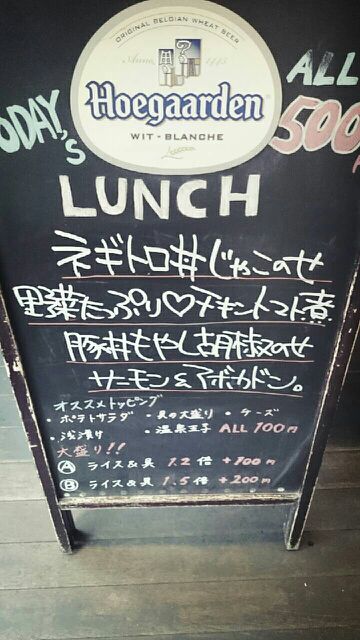 ORIGINAL BELGIAN WHEAT BEER
Anno 1445
Hoegaarden
WIT - BLANCHE
ODAY,s
ALL
500円
LUNCH
ネギトロ丼じゃこのせ
野菜たっぷり♡チキントマト煮
豚丼もやし胡椒のせ
サーモン&アボカドン。
オススメトッピング
・ポテトサラダ ・具の大盛り ・チーズ
・浅漬け ・温泉玉子 ALL 100円
大盛り!!
Ⓐ ライス&具 1.2倍 +100円
Ⓑ ライス&具 1.5倍 +200円